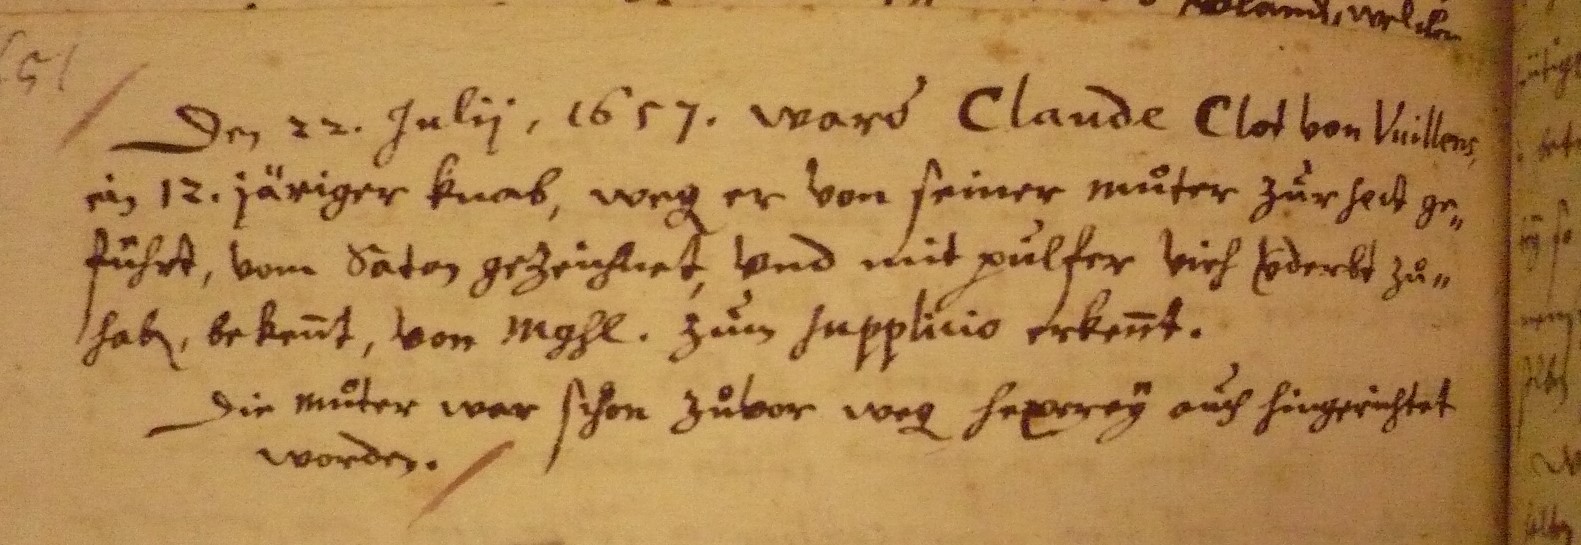 welchen
151
Den 22. Julij, 1657. ward Claude Clot von Vuillens,
ein 12. järiger knab, weg er von seiner můter zur sect ge„
führt, vom Satan gezeichnet, und mit pulfer vieh v̈derbt zů„
haben, bekeñt, von Mghl. zum supplicio erkeñt.
Die můter war schon zůvor weg hexerey auch hingerichtet
worden.